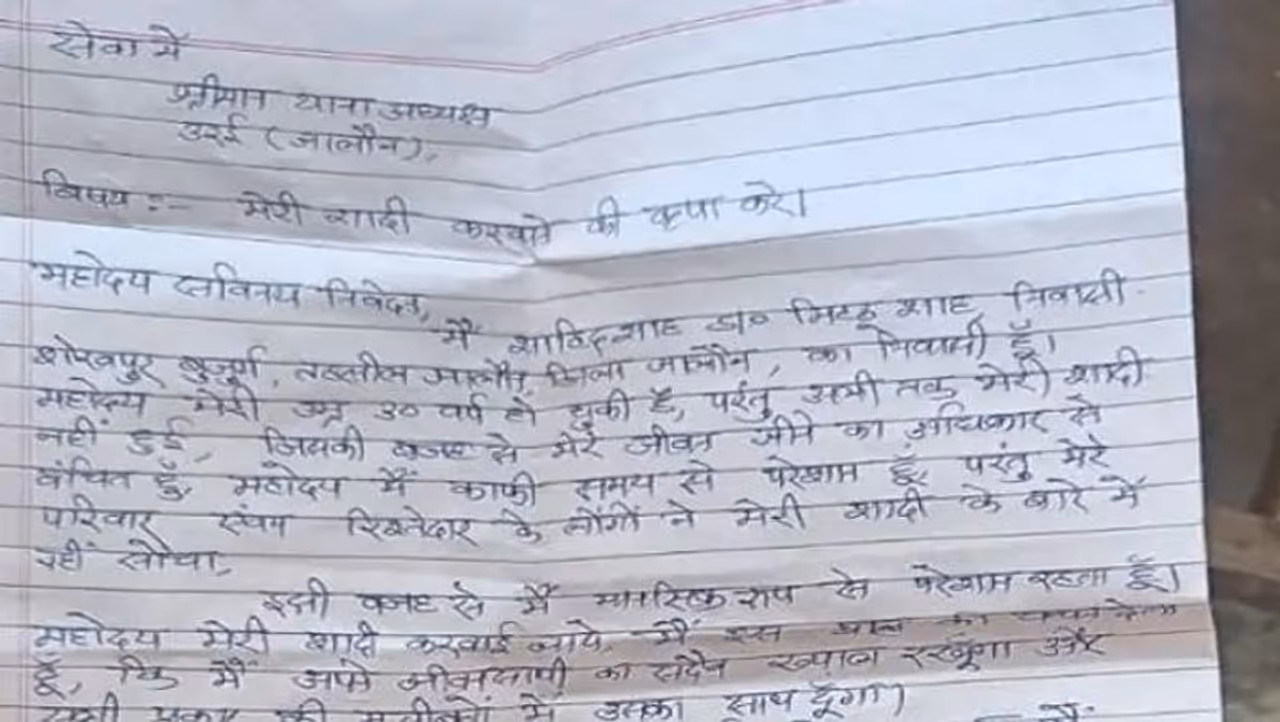 सेवा में
श्रीमान थाना अध्यक्ष
उरई (जालौन),
विषय :- मेरी शादी करवाने की कृपा करे।
महोदय सविनय निवेदन,
मैं शाविदशाह S/o मिट्ठू शाह निवासी
शेखपुर बुजुर्ग, तहसील जालौन, जिला जालौन, का निवासी हूँ।
महोदय मेरी उम्र 30 वर्ष हो चुकी है, परंतु अभी तक मेरी शादी
नहीं हुई, जिसकी वजह से मेरे जीवन जीने का अधिकार से
वंचित हूँ, महोदय मैं काफी समय से परेशान हूँ, परंतु मेरे
परिवार एंवम रिश्तेदार के लोंगों ने मेरी शादी के बारे में
नहीं सोचा,
इसी वजह से मैं मानसिक रूप से परेशान रहता हूँ।
महोदय मेरी शादी करवाई जाये, मैं इस बात का वचन देता
हूँ, कि मैं अपने जीवनसाथी का सदैव ख्याल रखूंगा और
सभी प्रकार की में उसका साथ दूँगा।
मैं